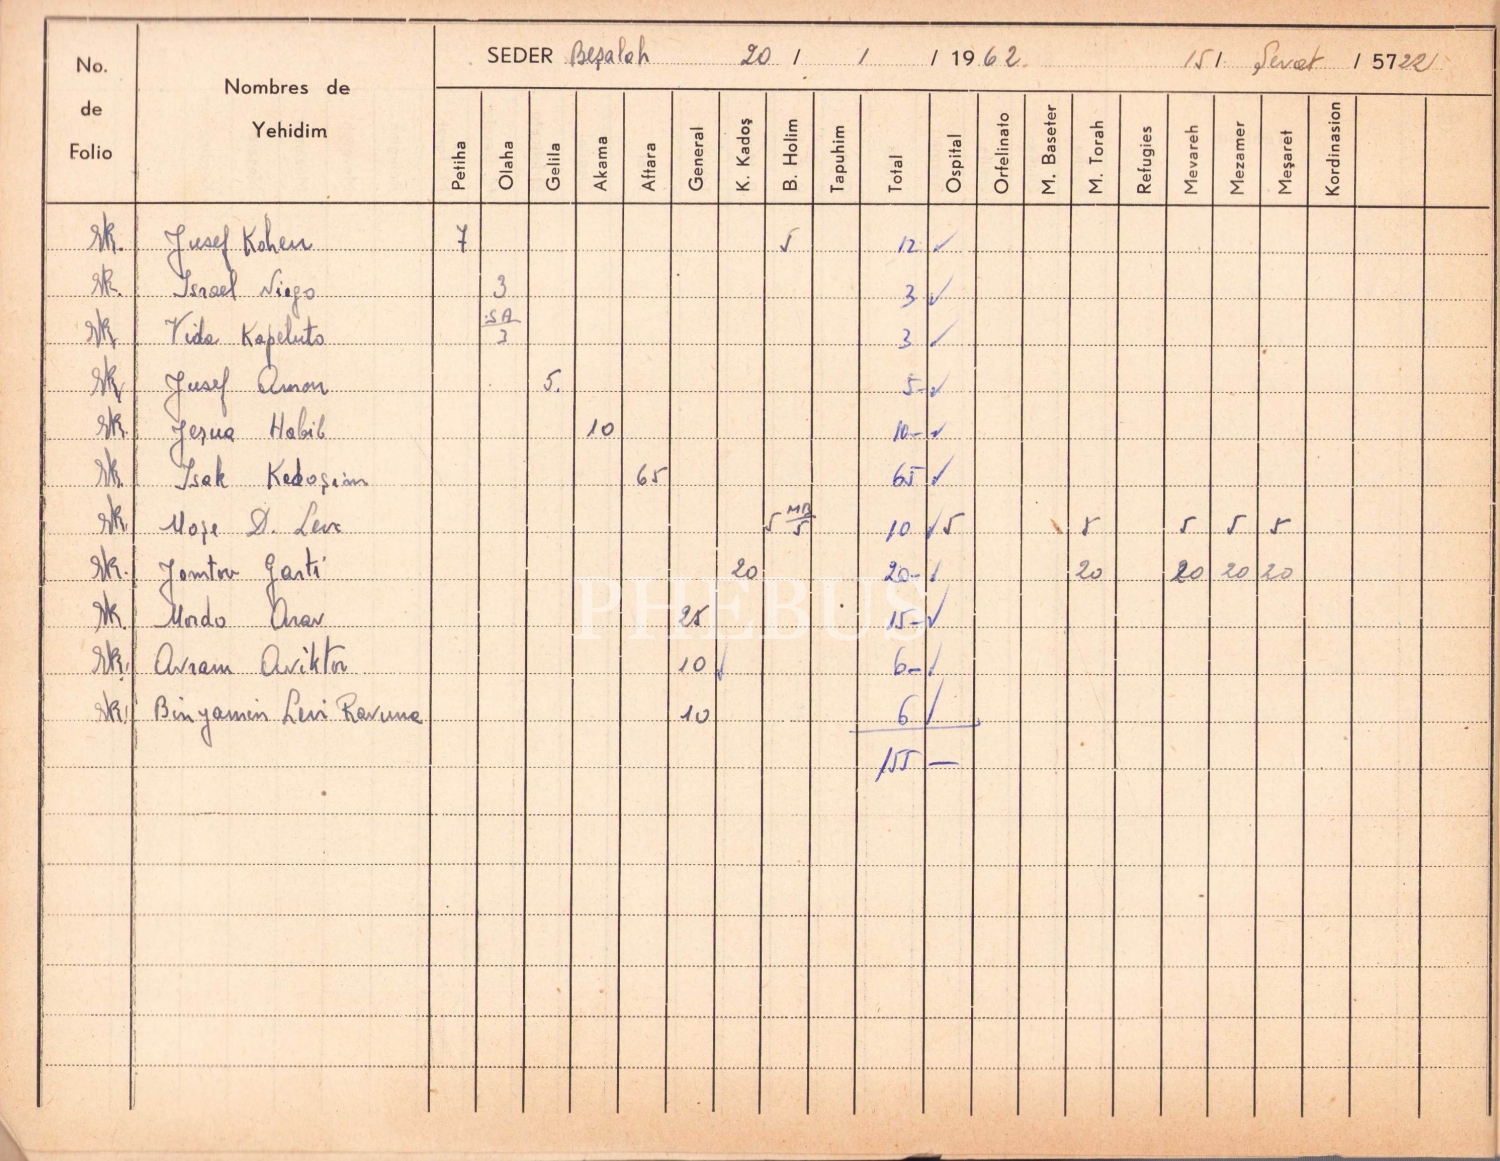 SEDER Beşalah 20 / 1 / 1962 15 / Şevat / 5722
No. de Folio
Nombres de Yehidim
Petiha Olaha Gelila Akama Aftara General K. Kadoş B. Holim Tapuhim Total Ospital Orfelinato M. Baseter M. Torah Refugies Mevareh Mezamer Meşaret Kordinasion
Jusef Kohen 7 5 12 ✓
Israel Niego 3 3 ✓
Vida Kapeluto SA 3 3 ✓
Jusef Amon 5. 5- ✓
Jeşua Habib 10 10- ✓
Isak Kedoşim 65 65 ✓
Moşe D. Levi 5 MB 5 10 ✓ 5 5 5 5 5
Jomtov Garti 20 20- ✓ 20 20 20 20
Mordo Arav 25 15- ✓
Avram Aviktor 10 ✓ 6- ✓
Binyamin Levi Ravuna 10 6 ✓
155 —
PHEBUS